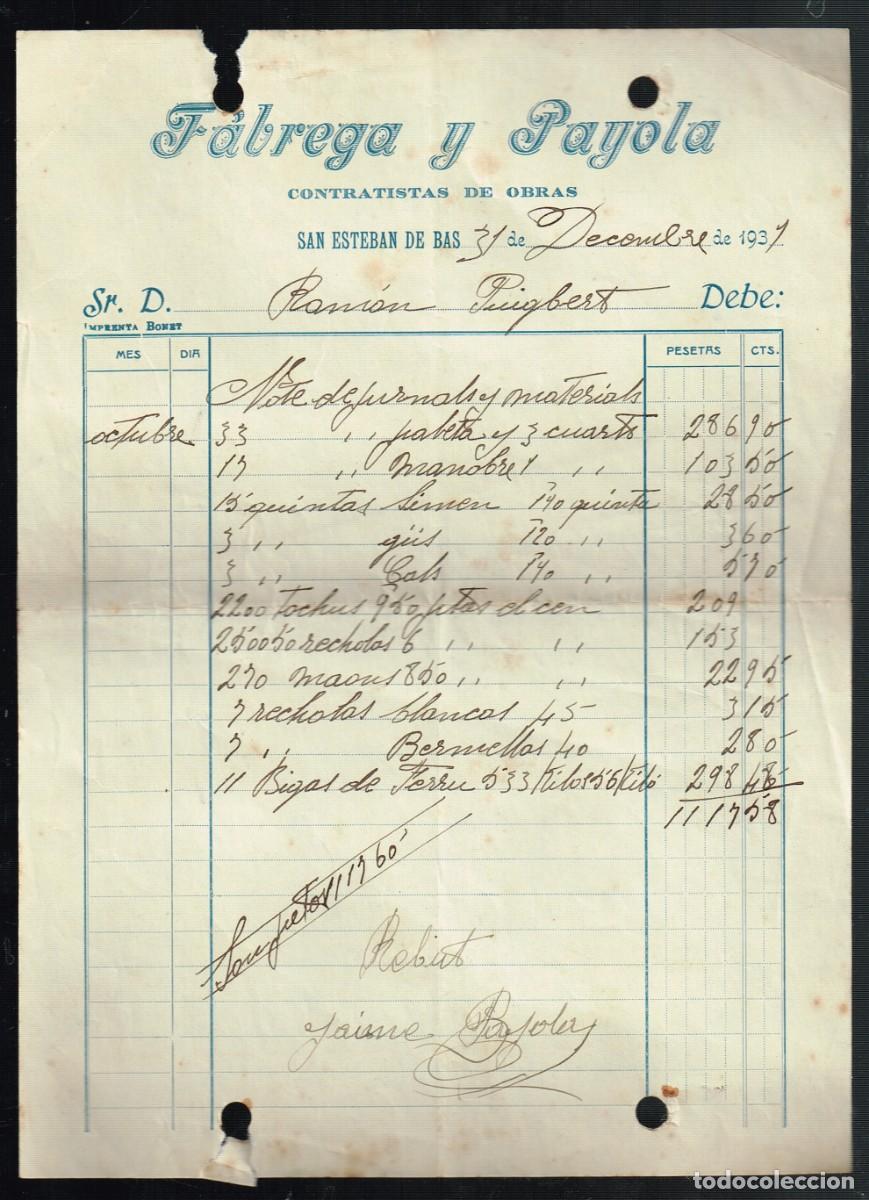 Fábrega y Payola
CONTRATISTAS DE OBRAS
SAN ESTEBAN DE BAS 31 de Decembre de 1931
Sr. D. Ramón Puigbert Debe:
IMPRENTA BONET
MES DIA PESETAS CTS.
Note de jurnals y materials
octubre 33 ,, paleta y 3 cuarts 286 90
17 ,, manobre 1 ,, 103 50
15 quintas simen 1'90 quinta 28 50
3 ,, güis 1'20 ,, 3 60
3 ,, Cals 1'90 ,, 5 70
2200 tochus 9 50 ptas el cen 209
2500 50 recholas 6 ,, ,, 153
270 maons 8 50 ,, ,, 22 95
7 recholas blancas 45 3 15
7 ,, Bermellas 40 2 80
11 Bigas de Ferru 533 kilos 56 kiló 298 48
1117 58
Son ptas 1117 60
Rebut
Jaime Payola
todocoleccion